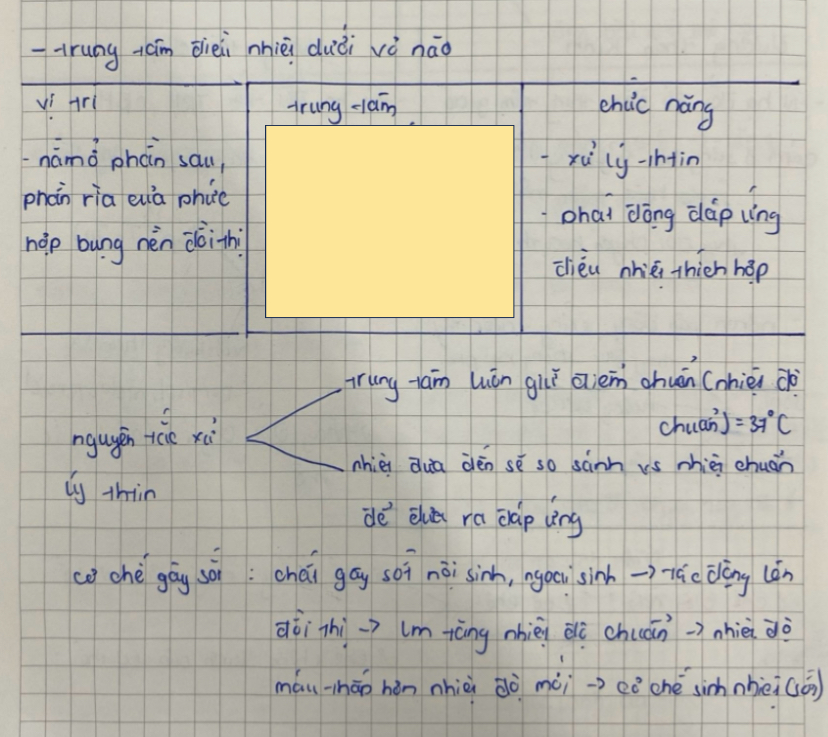 - trung tâm điều nhiệt dưới vỏ não
vị trí
- nằm ở phần sau,
phần rìa của phức
hợp bụng nền đồi thị
trung tâm
chức năng
- xử lý thtin
- phát động đáp ứng
điều nhiệt thích hợp
nguyên tắc xử
lý thtin
trung tâm luôn giữ điểm chuẩn (nhiệt độ
chuẩn) = 37°C
nhiệt đưa đến sẽ so sánh vs nhiệt chuẩn
để đưa ra đáp ứng
cơ chế gây sốt : chất gây sốt nội sinh, ngoại sinh -> tác động lên
đồi thị -> lm tăng nhiệt độ chuẩn -> nhiệt độ
máu thấp hơn nhiệt độ mới -> cơ chế sinh nhiệt (sốt)